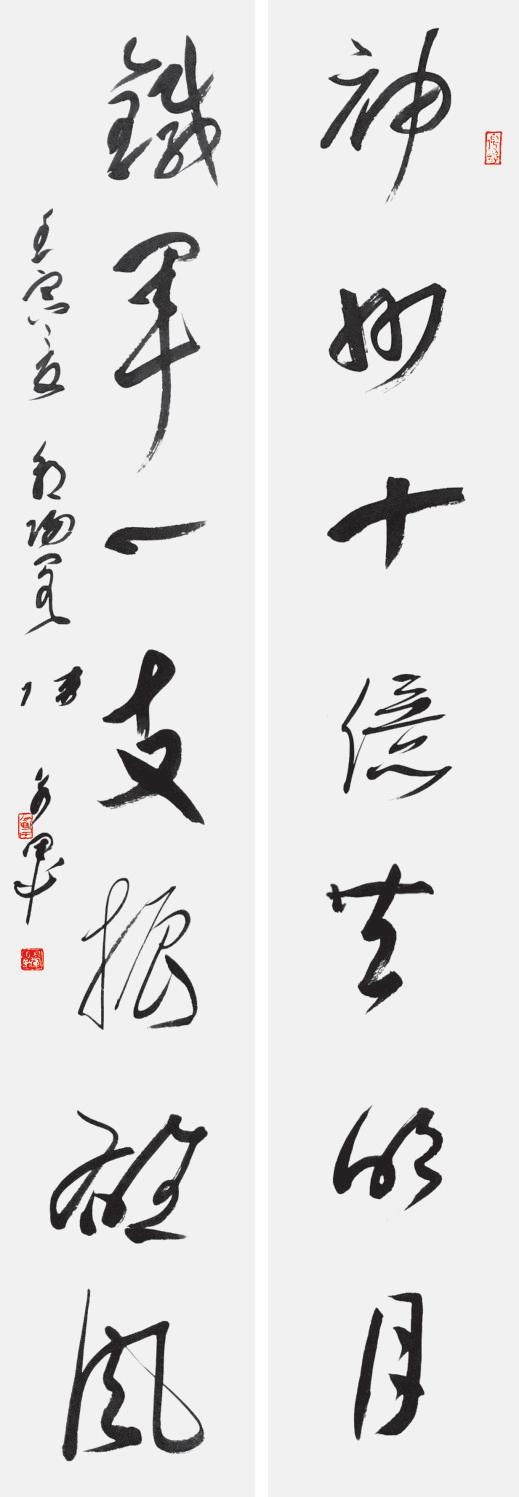 神州十億共明月
鐵軍一支振雄風
壬寅夏